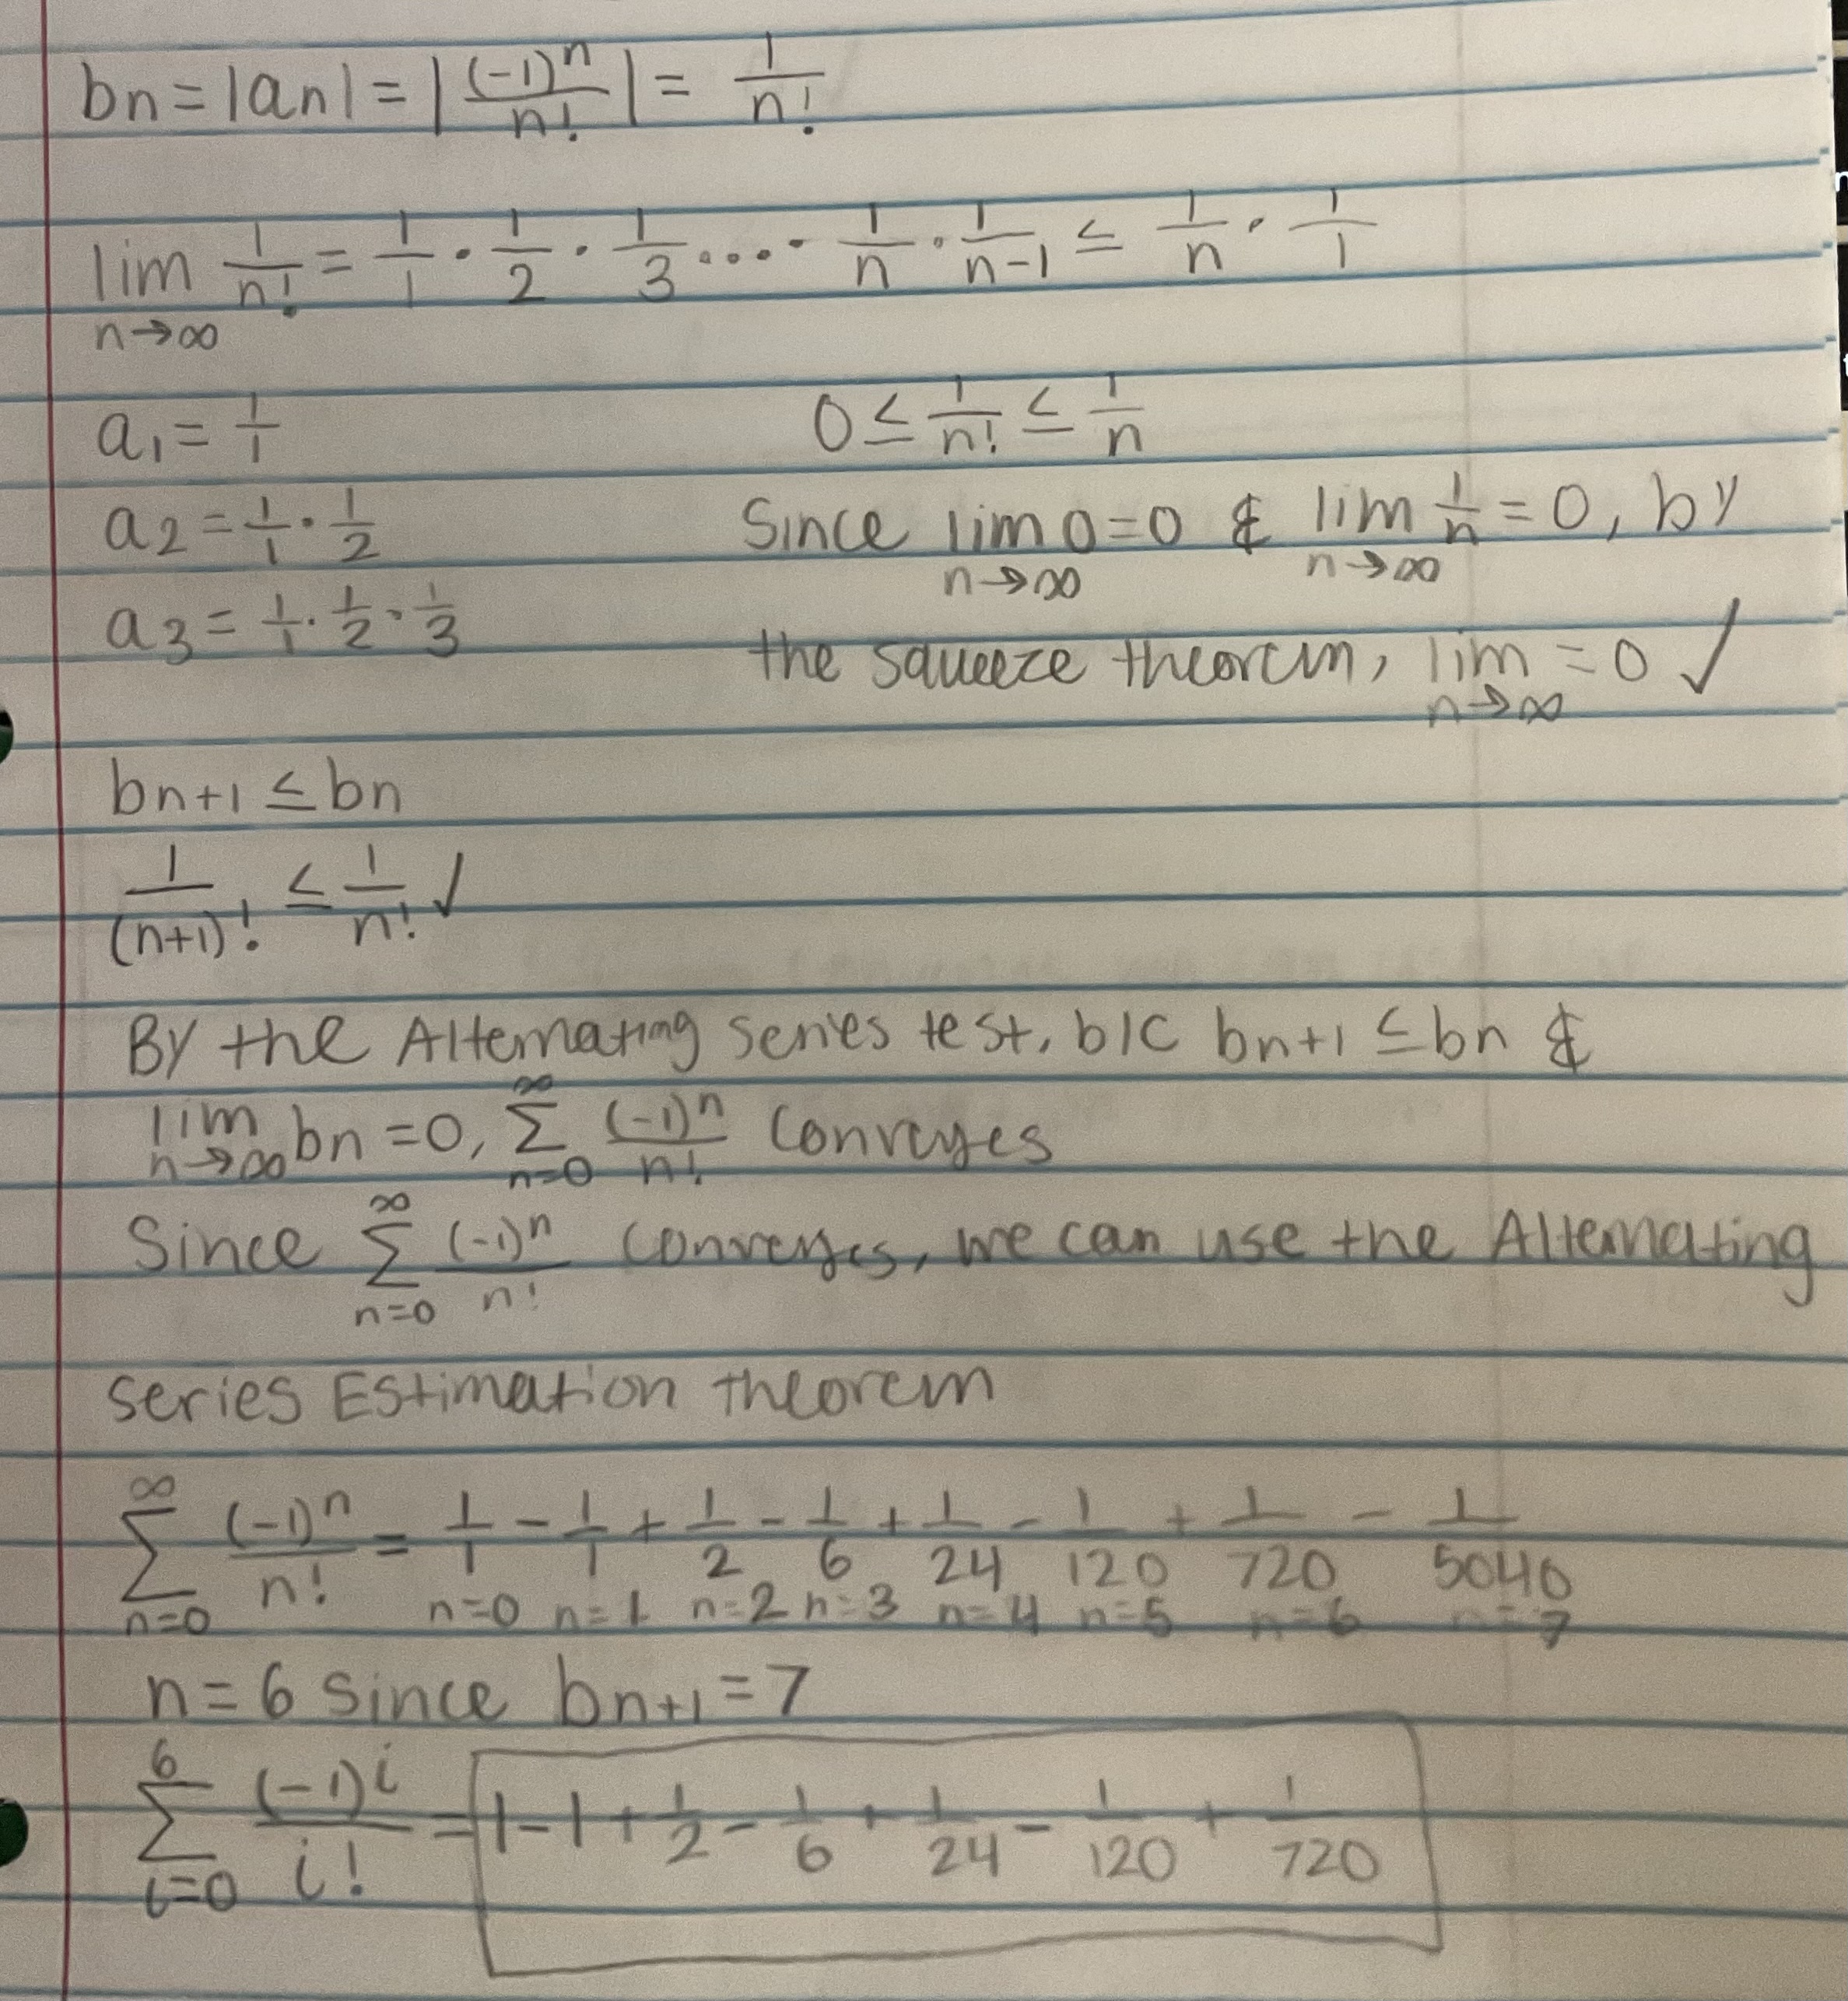 bn = |an| = |(-1)^n / n!| = 1/n!
lim n→∞ 1/n! = 1/1 · 1/2 · 1/3 ... · 1/n · 1/n-1 ≤ 1/n · 1/1
a1 = 1/1
0 ≤ 1/n! ≤ 1/n
a2 = 1/1 · 1/2
Since lim n→∞ 0 = 0 & lim n→∞ 1/n = 0, by
a3 = 1/1 · 1/2 · 1/3
the squeeze theorem, lim n→∞ = 0 ✓
bn+1 ≤ bn
1/(n+1)! ≤ 1/n! ✓
By the Alternating series test, b/c bn+1 ≤ bn &
lim n→∞ bn = 0, ∞ Σ n=0 (-1)^n / n! converges
Since ∞ Σ n=0 (-1)^n / n! converges, we can use the Alternating
series Estimation theorem
∞ Σ n=0 (-1)^n / n! = 1/1 - 1/1 + 1/2 - 1/6 + 1/24 - 1/120 + 1/720 - 1/5040
n=0 n=1 n=2 n=3 n=4 n=5 n=6 n=7
n = 6 since bn+1 = 7
6 Σ i=0 (-1)^i / i! = 1 - 1 + 1/2 - 1/6 + 1/24 - 1/120 + 1/720